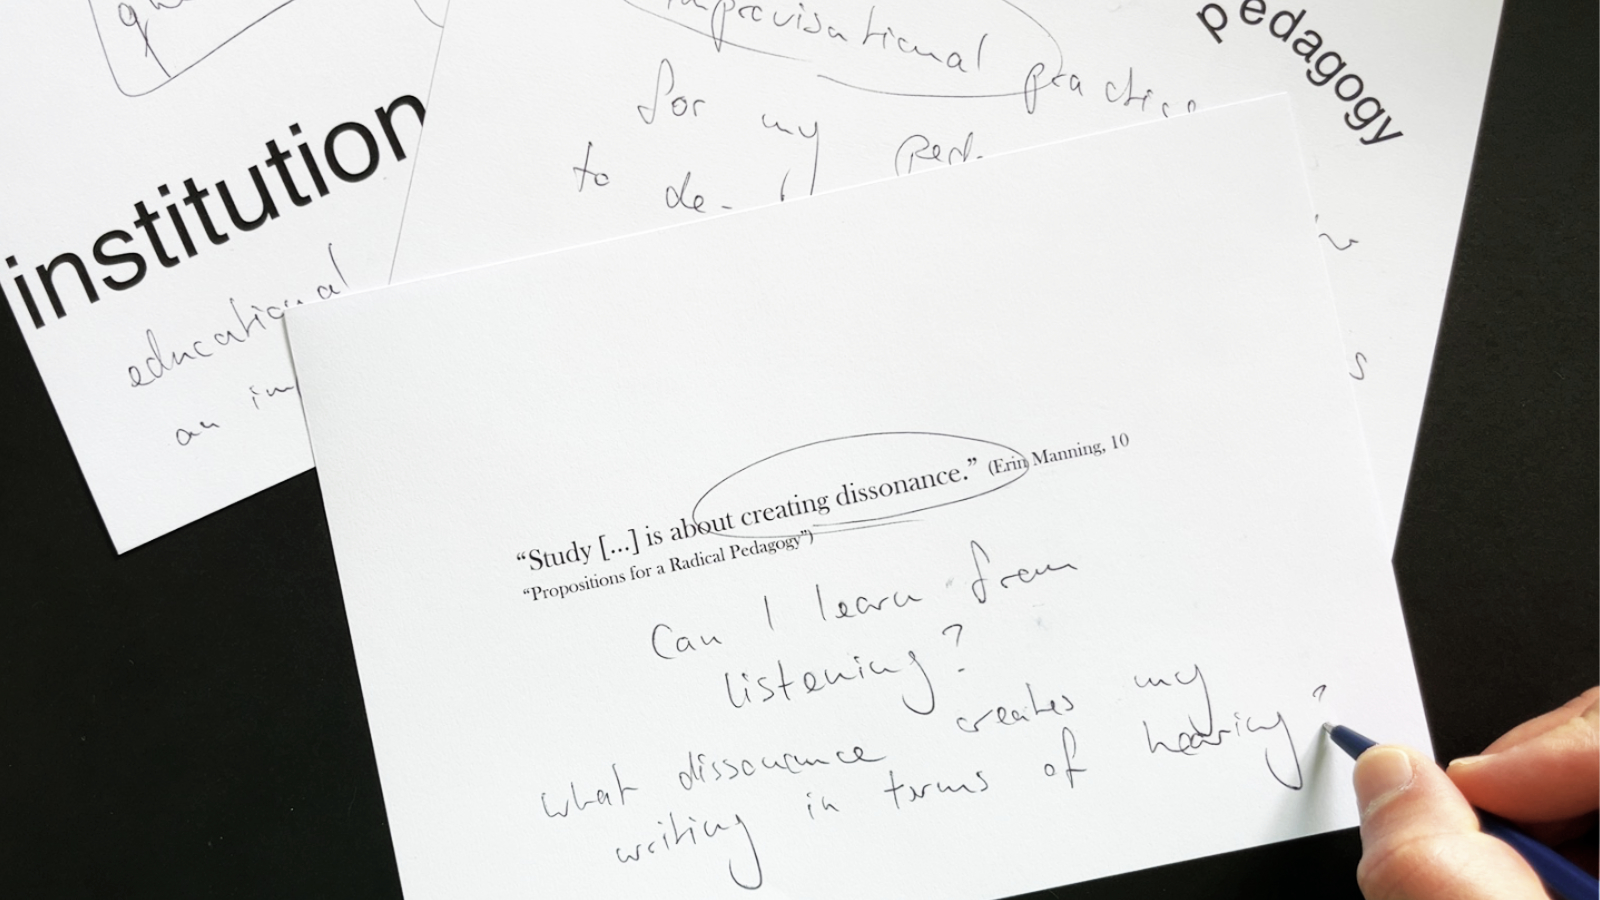 institution
educational
an
improvisational practice
for my
to
pedagogy
“Study [...] is about creating dissonance.” (Erin Manning, 10
“Propositions for a Radical Pedagogy”)
Can I learn from
listening?
what dissonance creates my
writing in terms of hearing?